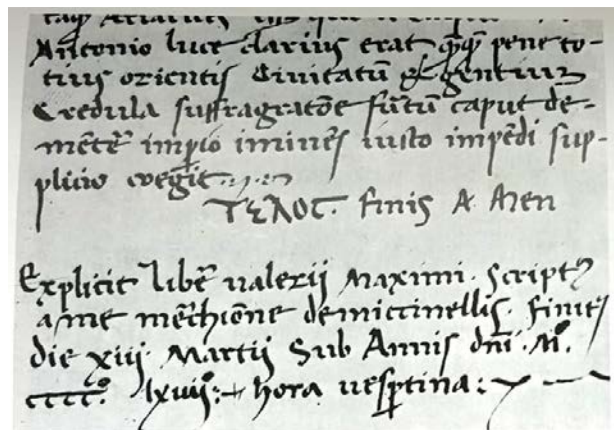 Antonio luce clarius erat qͥqͣ pene to-
tius orientis Ciuitatū & gentium
Credula suffragratōe fūtū caput de-
mētē impio iminēs iusto impēdi sup-
plicio coegit
ΤΕΛΟC. finis A Men
Explicit libē ualerij Maximi. Scriptꝰ
a me mēchiōne de miccinellis. finitꝰ
die xiij Martij Sub Annis dn̄i. Mͦ.
ccccͦ. lxviijͦ hora uesp̱tina: